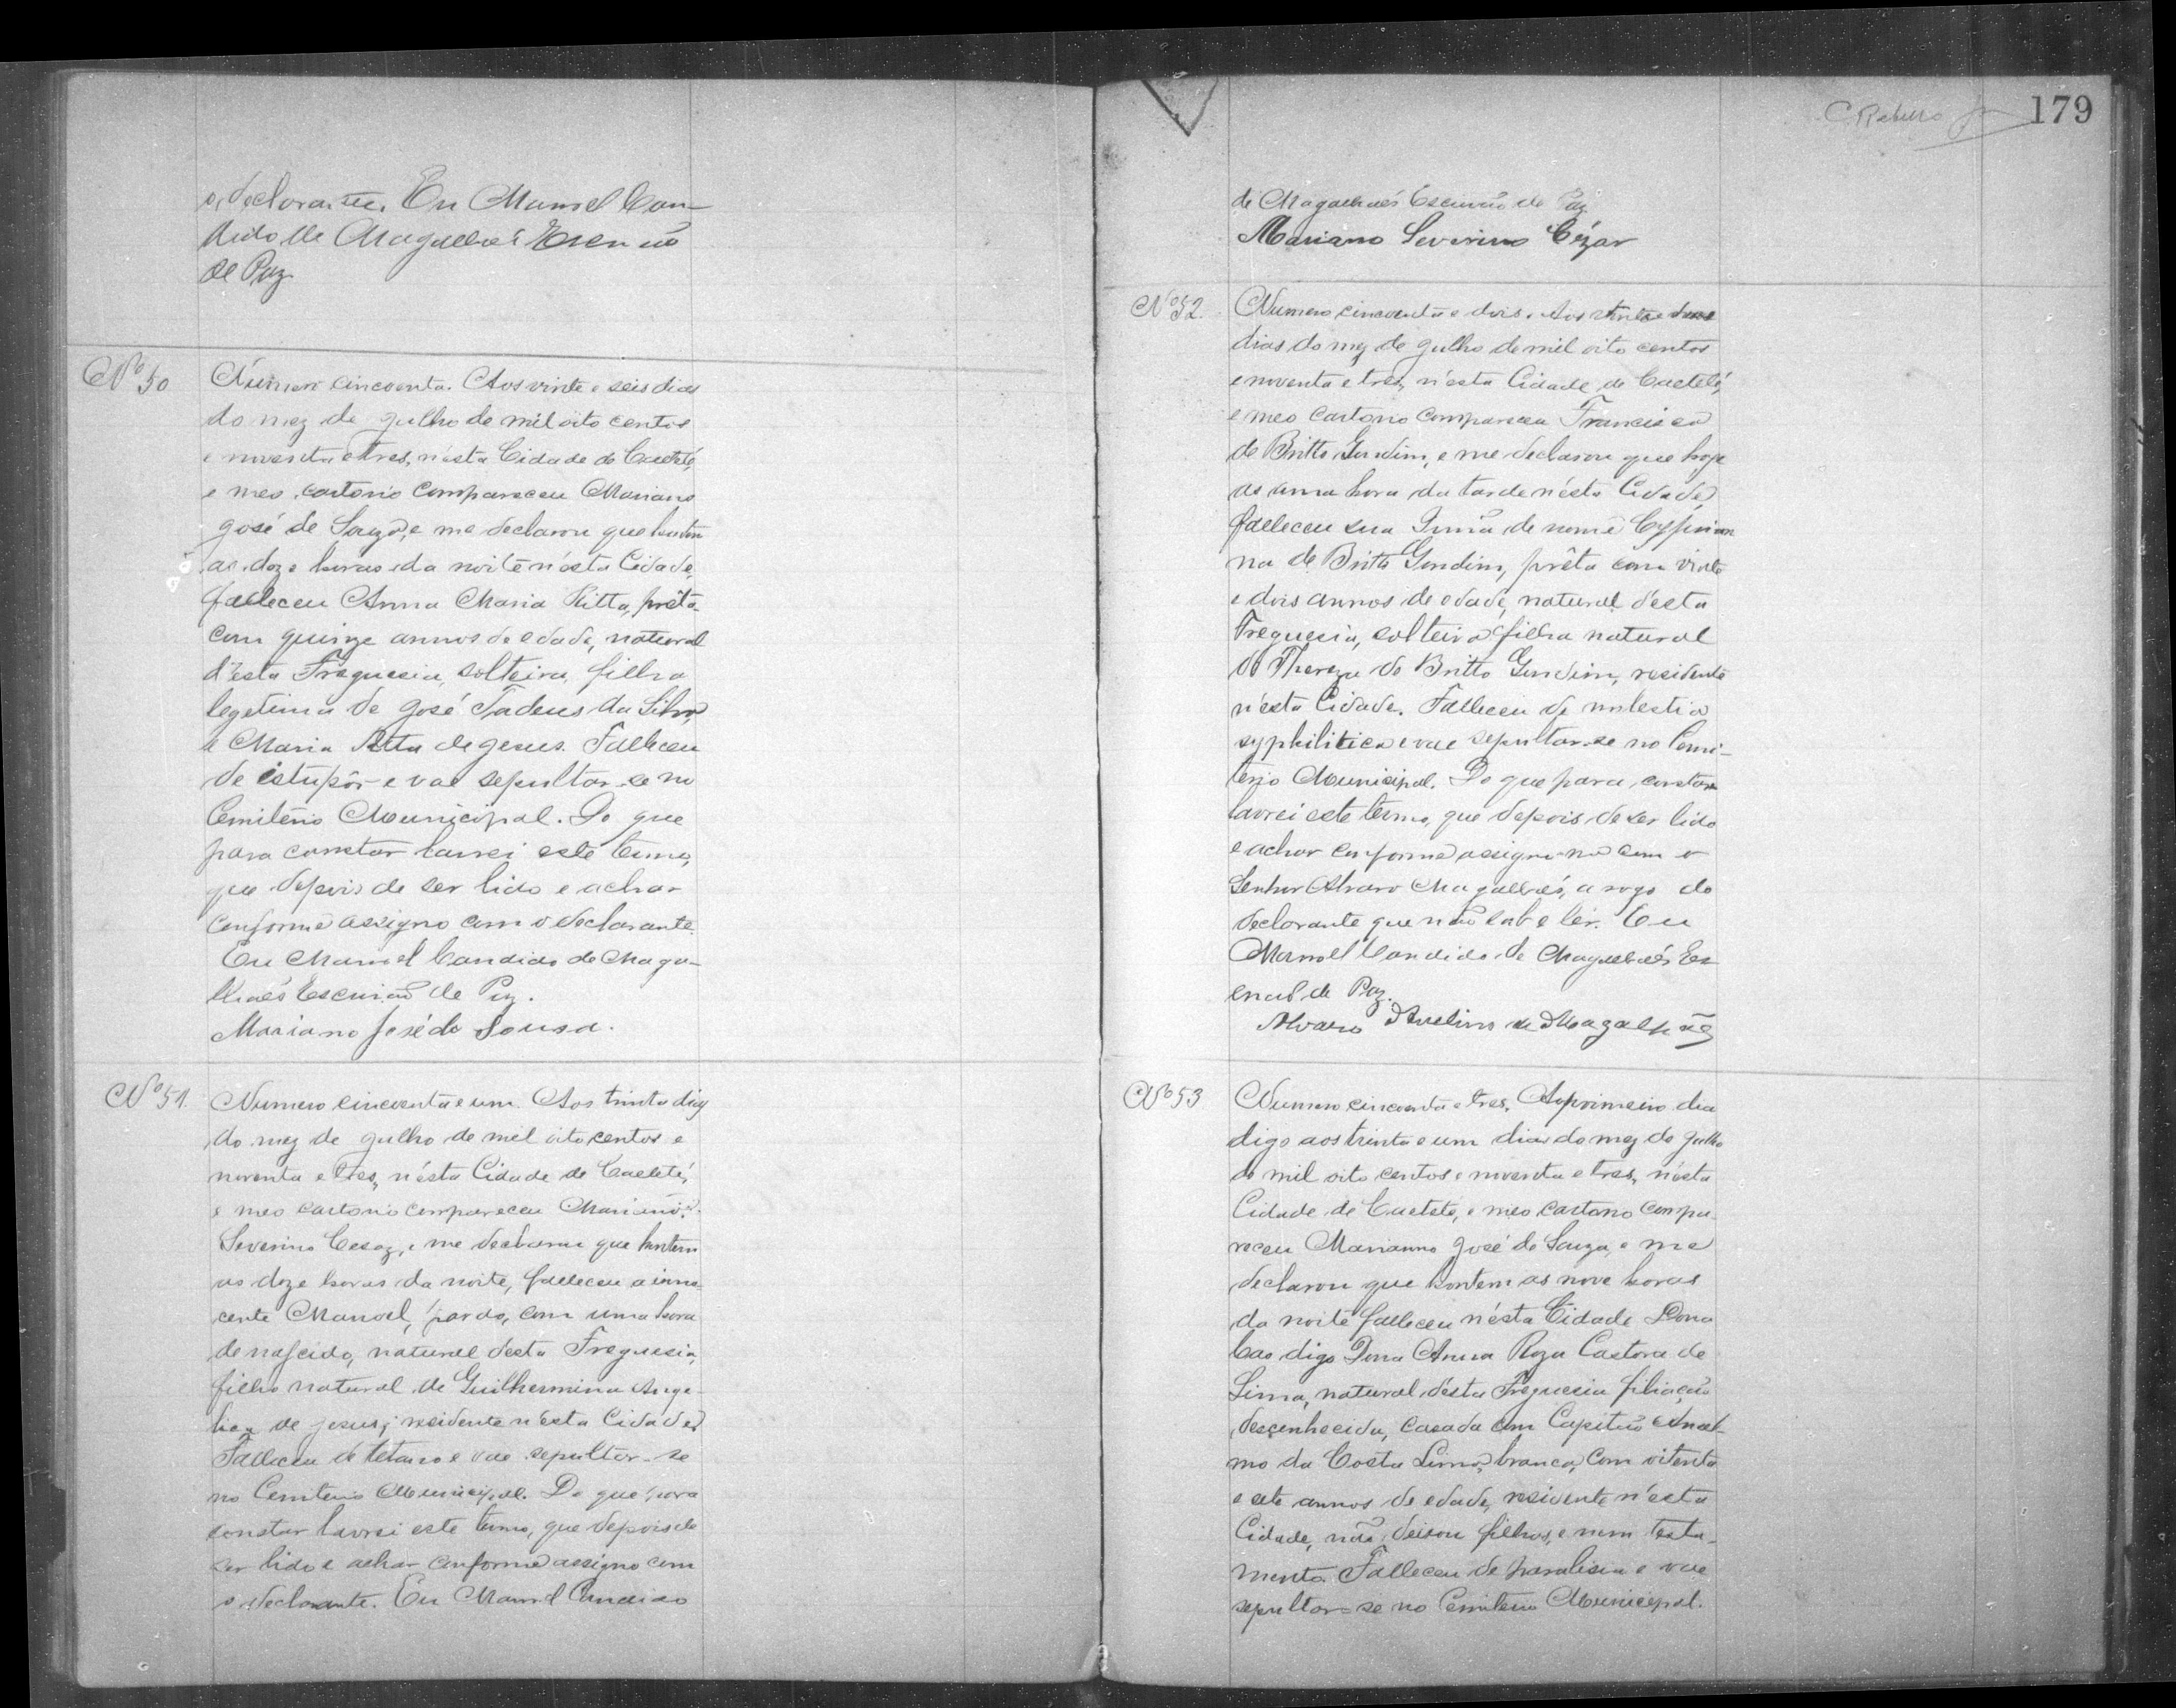 o declarante. Eu Manoel Can-
dido de Magalhães Escrivão
de Paz
Nº 50
Numero cincoenta. Aos vinte e seis dias
do mez de Julho de mil oito centos
e noventa e tres, n'esta Cidade de Caeteté,
e meo cartorio compareceu Mariano
José de Souza, e me declarou que hontem
as doze horas da noite n'esta Cidade,
falleceu Anna Maria Ritta, prêta
com quinze annos de edade, natural
d'esta Freguesia, solteira, filha
legetima de José Tadeus da Silva
e Maria Ritta de Jesus. Falleceu
de estupôr e vae sepultar-se no
Cemiterio Municipal. Do que
para constar lavrei este termo,
que depois de ser lido e achar
conforme assigno com o declarante.
Eu Manoel Candido de Maga-
lhães Escrivão de Paz.
Mariano José de Sousa.
Nº 51.
Numero cincoenta e um. Aos trinta dias
do mez de Julho de mil oito centos e
noventa e tres, n'esta Cidade de Caeteté,
e meo cartorio compareceu Mariano
Severino Cesar, e me declarou que hontem
as doze horas da noite, falleceu a inno-
cente Manoel, pardo, com uma hora
de nascido, natural desta Freguesia,
filho natural de Guilhermina Ange-
lica de Jesus, residente n'esta Cidade.
Falleceu de tetano e vae sepultar-se
no Cemiterio Municipal. Do que para
constar lavrei este termo, que depois de
ser lido e achar conforme assigno com
o declarante. Eu Manoel Candido
C Rebello
179
de Magalhães Escrivão de Paz
Mariano Severino Cézar
Nº 52.
Numero cincoenta e dois. Aos trinta
dias do mez de Julho de mil oito centos
e noventa e tres, n'esta Cidade de Caeteté,
e meo cartorio compareceu Francisca
de Britto Gondim, e me declarou que hoje
as uma hora da tarde n'esta Cidade
falleceu sua Irmã de nome Cyprian
na de Britto Gondim, prêta com vinte
e dois annos de edade, natural desta
Freguesia, solteira filha natural
de Thereza de Britto Gondim, residente
n'esta Cidade. Falleceu de molestia
syphilitica e vae sepultar-se no Cemi-
terio Municipal. Do que para constar
lavrei este termo, que depois de ser lido
e achar conforme assigna-no com o
Senhor Alvaro Magalhães, a rogo do
declarante que não sabe lêr. Eu
Manoel Candido de Magalhães Es
crivão de Paz.
Alvaro Avelino de Magalhães
Nº 53
Numero cincoenta e tres. Ao primeiro dia
digo aos trinta e um dias do mez de Julho
de mil oito centos e noventa e tres, n'esta
Cidade de Caeteté, e meo cartorio compa-
receu Marianno José de Souza, e me
declarou que hontem as nove horas
da noite falleceu n'esta Cidade Dona
Cas digo Dona Anna Roza Castora de
Lima, natural desta Freguesia filiação
desconhecida, casada com Capitão Ansel-
mo da Costa Lima, branca, com oitenta
e sete annos de edade, residente n'esta
Cidade, não deixou filhos, e nem testa-
mento. Falleceu de paralisia e vae
sepultar-se no Cemiterio Municipal.